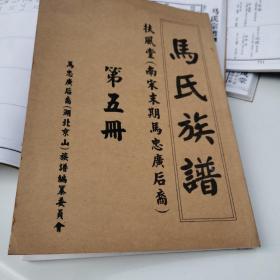 馬氏族譜
扶風堂(南宋末期馬忠廣后裔)
第五冊
馬忠廣后裔(湖北京山)族譜編纂委員會